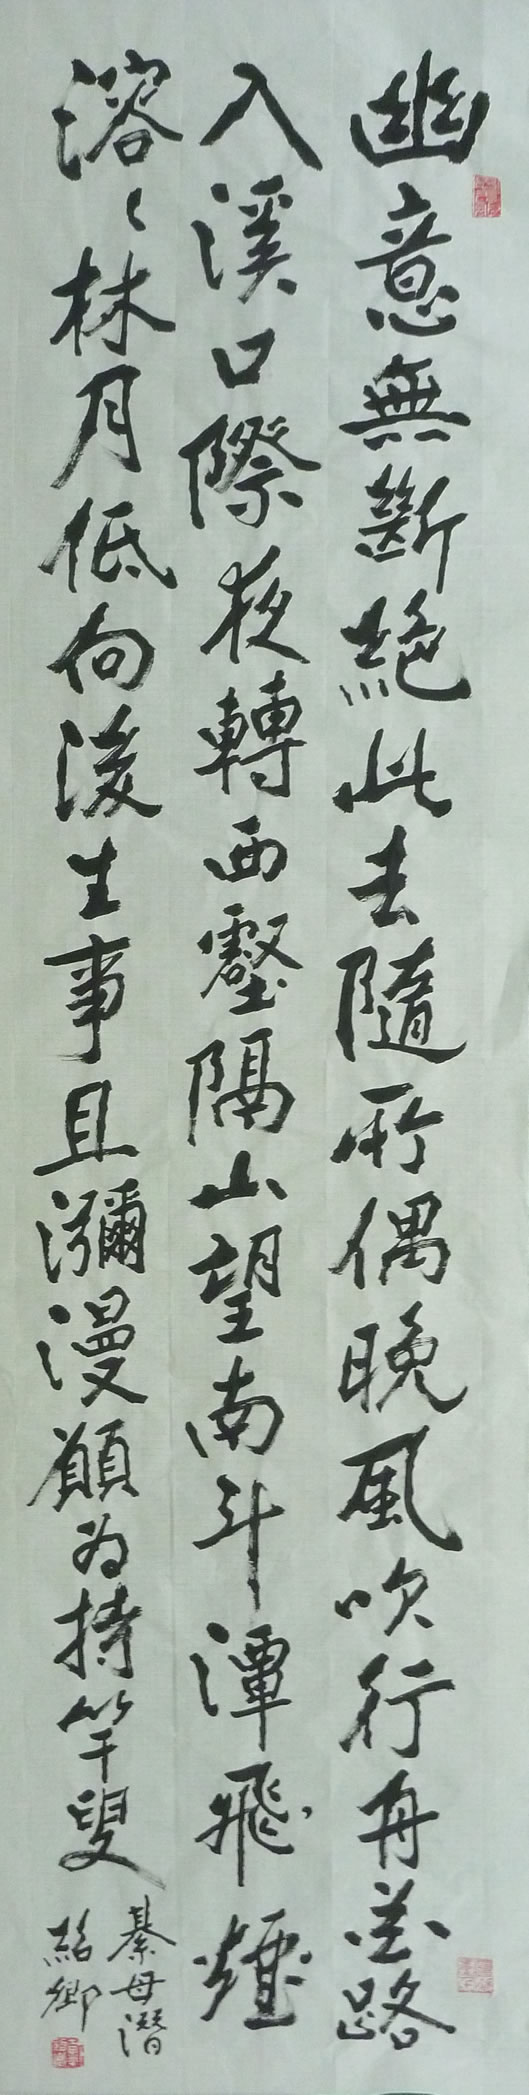 幽意無斷絕此去隨所偶晚風吹行舟花路
入溪口際夜轉西壑隔山望南斗潭飛煙
溶〻林月低向後生事且瀰漫願為持竿叟
綦毋潛
紹卿